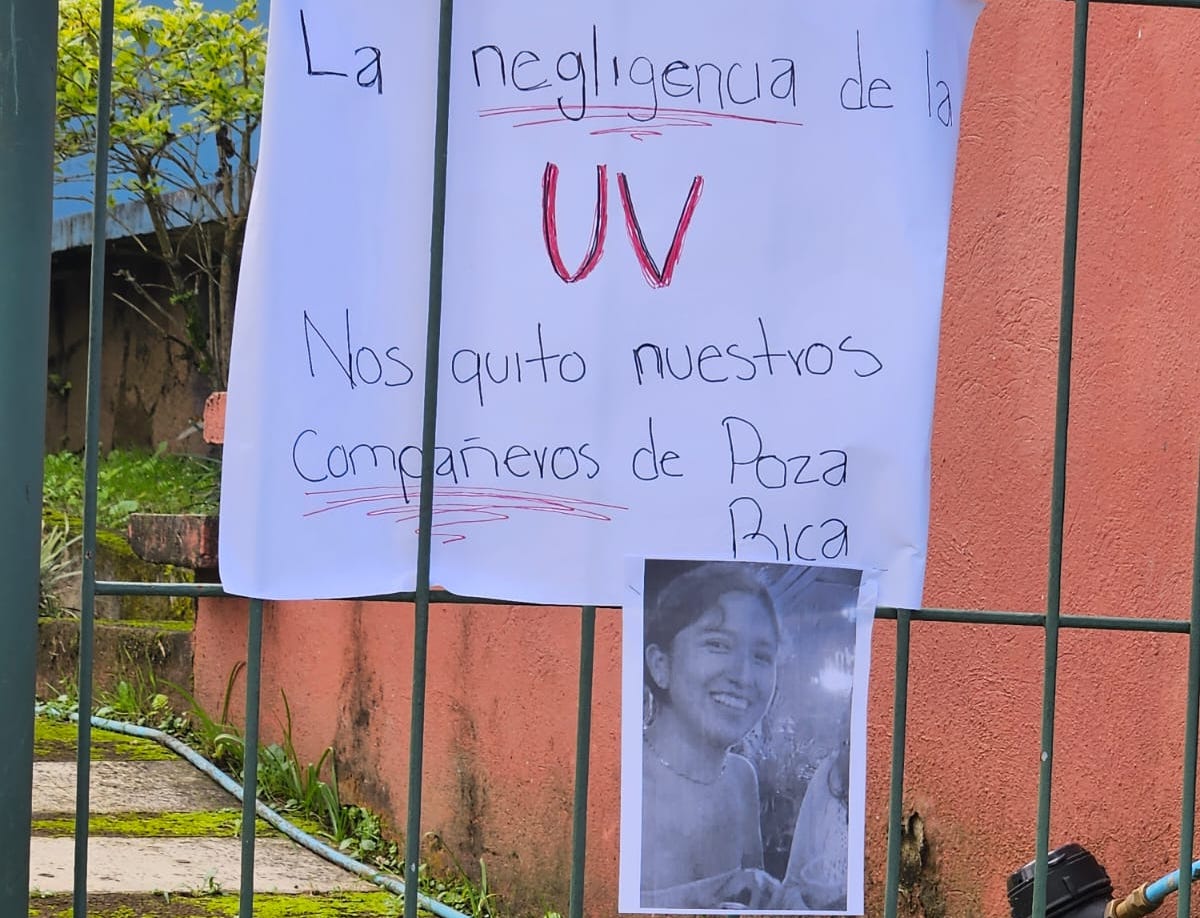 La negligencia de la
UV
Nos quito nuestros
Compañeros de Poza
Rica